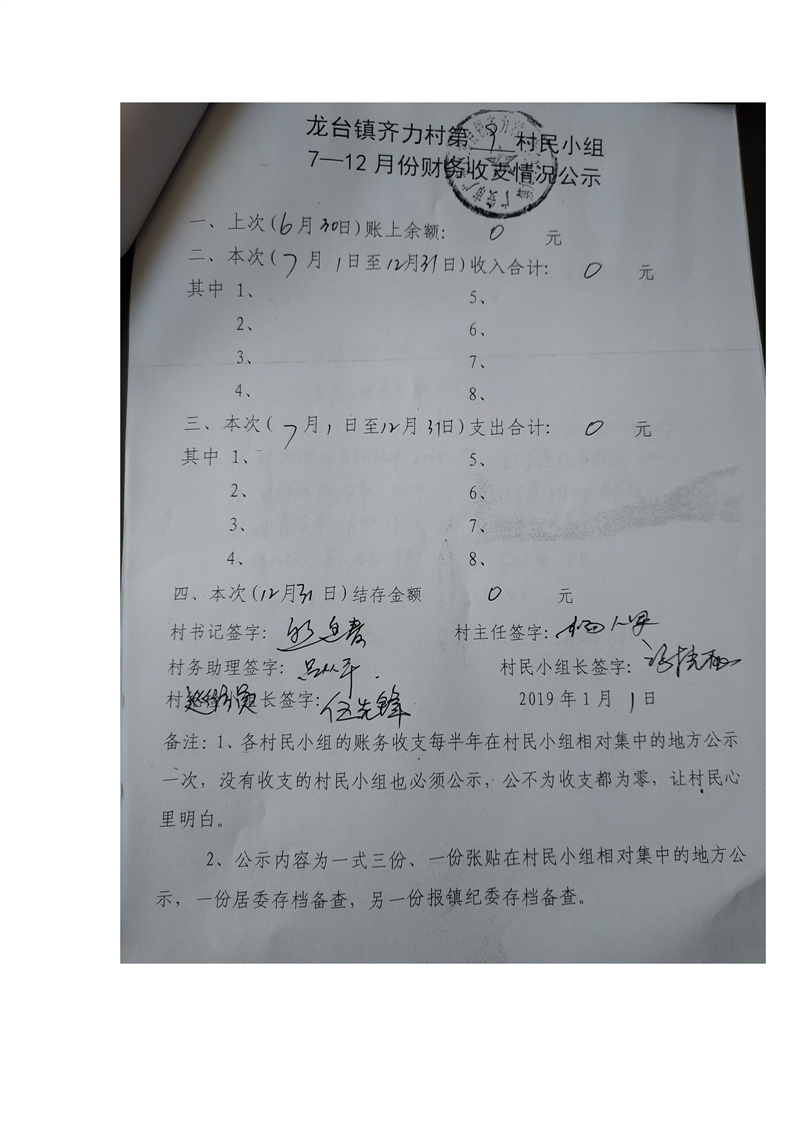 龙台镇齐力村第 9 村民小组
7—12月份财务收支情况公示
一、上次(6月30日)账上余额: 0 元
二、本次(7月1日至12月31日)收入合计: 0 元
其中 1、 5、
2、 6、
3、 7、
4、 8、
三、本次(7月1日至12月31日)支出合计: 0 元
其中 1、 5、
2、 6、
3、 7、
4、 8、
四、本次(12月31日)结存金额 0 元
村书记签字: 村主任签字:
村务助理签字: 村民小组长签字:
村 长签字: 伍先锋 2019年1月1日
备注:1、各村民小组的账务收支每半年在村民小组相对集中的地方公示
一次,没有收支的村民小组也必须公示,公不为收支都为零,让村民心
里明白。
2、公示内容为一式三份、一份张贴在村民小组相对集中的地方公
示,一份居委存档备查,另一份报镇纪委存档备查。